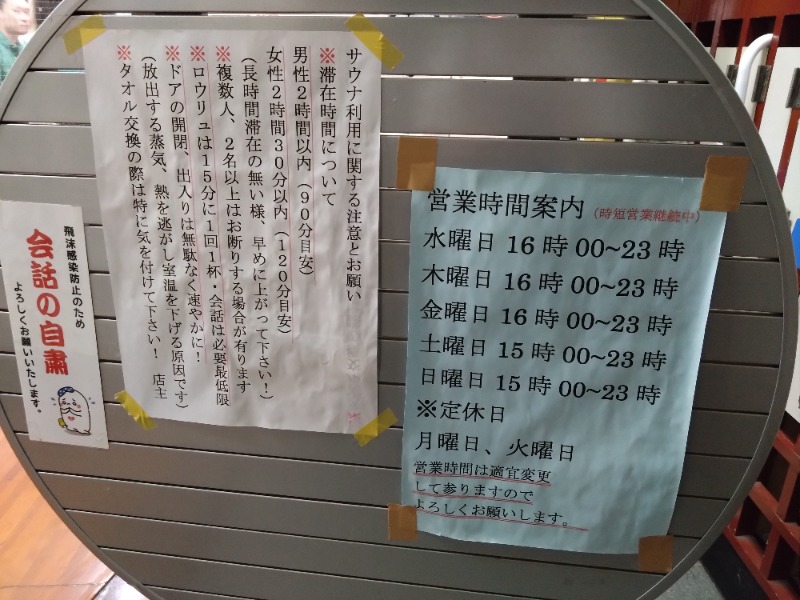 サウナ利用に関する注意とお願い
※滞在時間について
男性２時間以内（９０分目安）
女性２時間３０分以内（１２０分目安）
（長時間滞在の無い様、早めに上がって下さい！）
※複数人、２名以上はお断りする場合が有ります
※ロウリュは１５分に１回１杯・会話は必要最低限
※ドアの開閉、出入りは無駄なく速やかに！
（放出する蒸気、熱を逃がし室温を下げる原因です）
※タオル交換の際は特に気を付けて下さい！　店主
飛沫感染防止のため
会話の自粛
よろしくお願いいたします。
営業時間案内（時短営業継続中）
水曜日 16 時 00~23 時
木曜日 16 時 00~23 時
金曜日 16 時 00~23 時
土曜日 15 時 00~23 時
日曜日 15 時 00~23 時
※定休日
月曜日、火曜日
営業時間は適宜変更
して参りますので
よろしくお願いします。